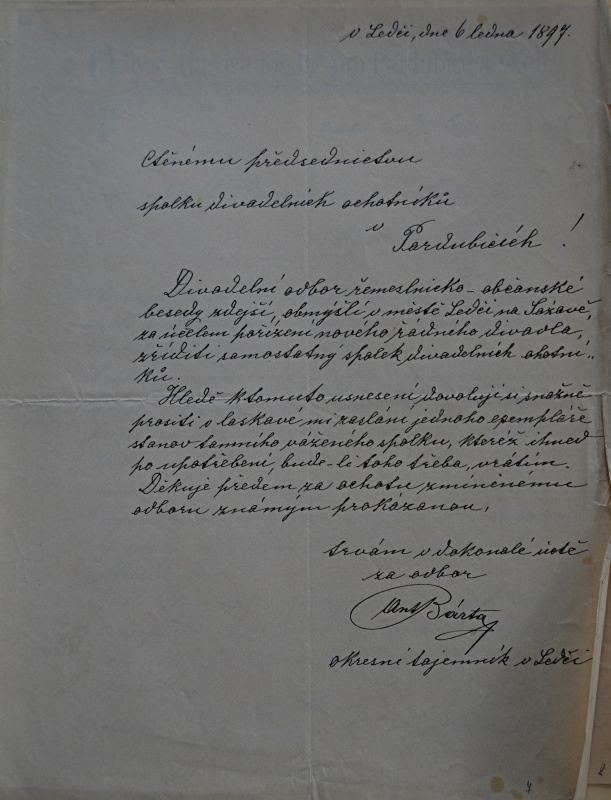 v Ledči, dne 6 ledna 1897.
Ctěnému předsednictvu
spolku divadelních ochotníků
v
Pardubicích !
Divadelní odbor řemeslnicko-občanské
besedy zdejší, obmýšlí v městě Ledči na Sázavě,
za účelem pořízení nového řádného divadla,
zříditi samostatný spolek divadelních ochotní-
ků.
Hledě k tomuto usnesení dovoluji si snažně
prositi o laskavé mi zaslání jednoho exempláře
stanov tamního váženého spolku, kteréž ihned
po upotřebení, bude-li toho třeba, vrátím.
Děkuje předem za ochotu zmíněnému
odboru známým prokázanou,
trvám v dokonalé úctě
za odbor
Ant Bárta
okresní tajemník v Ledči